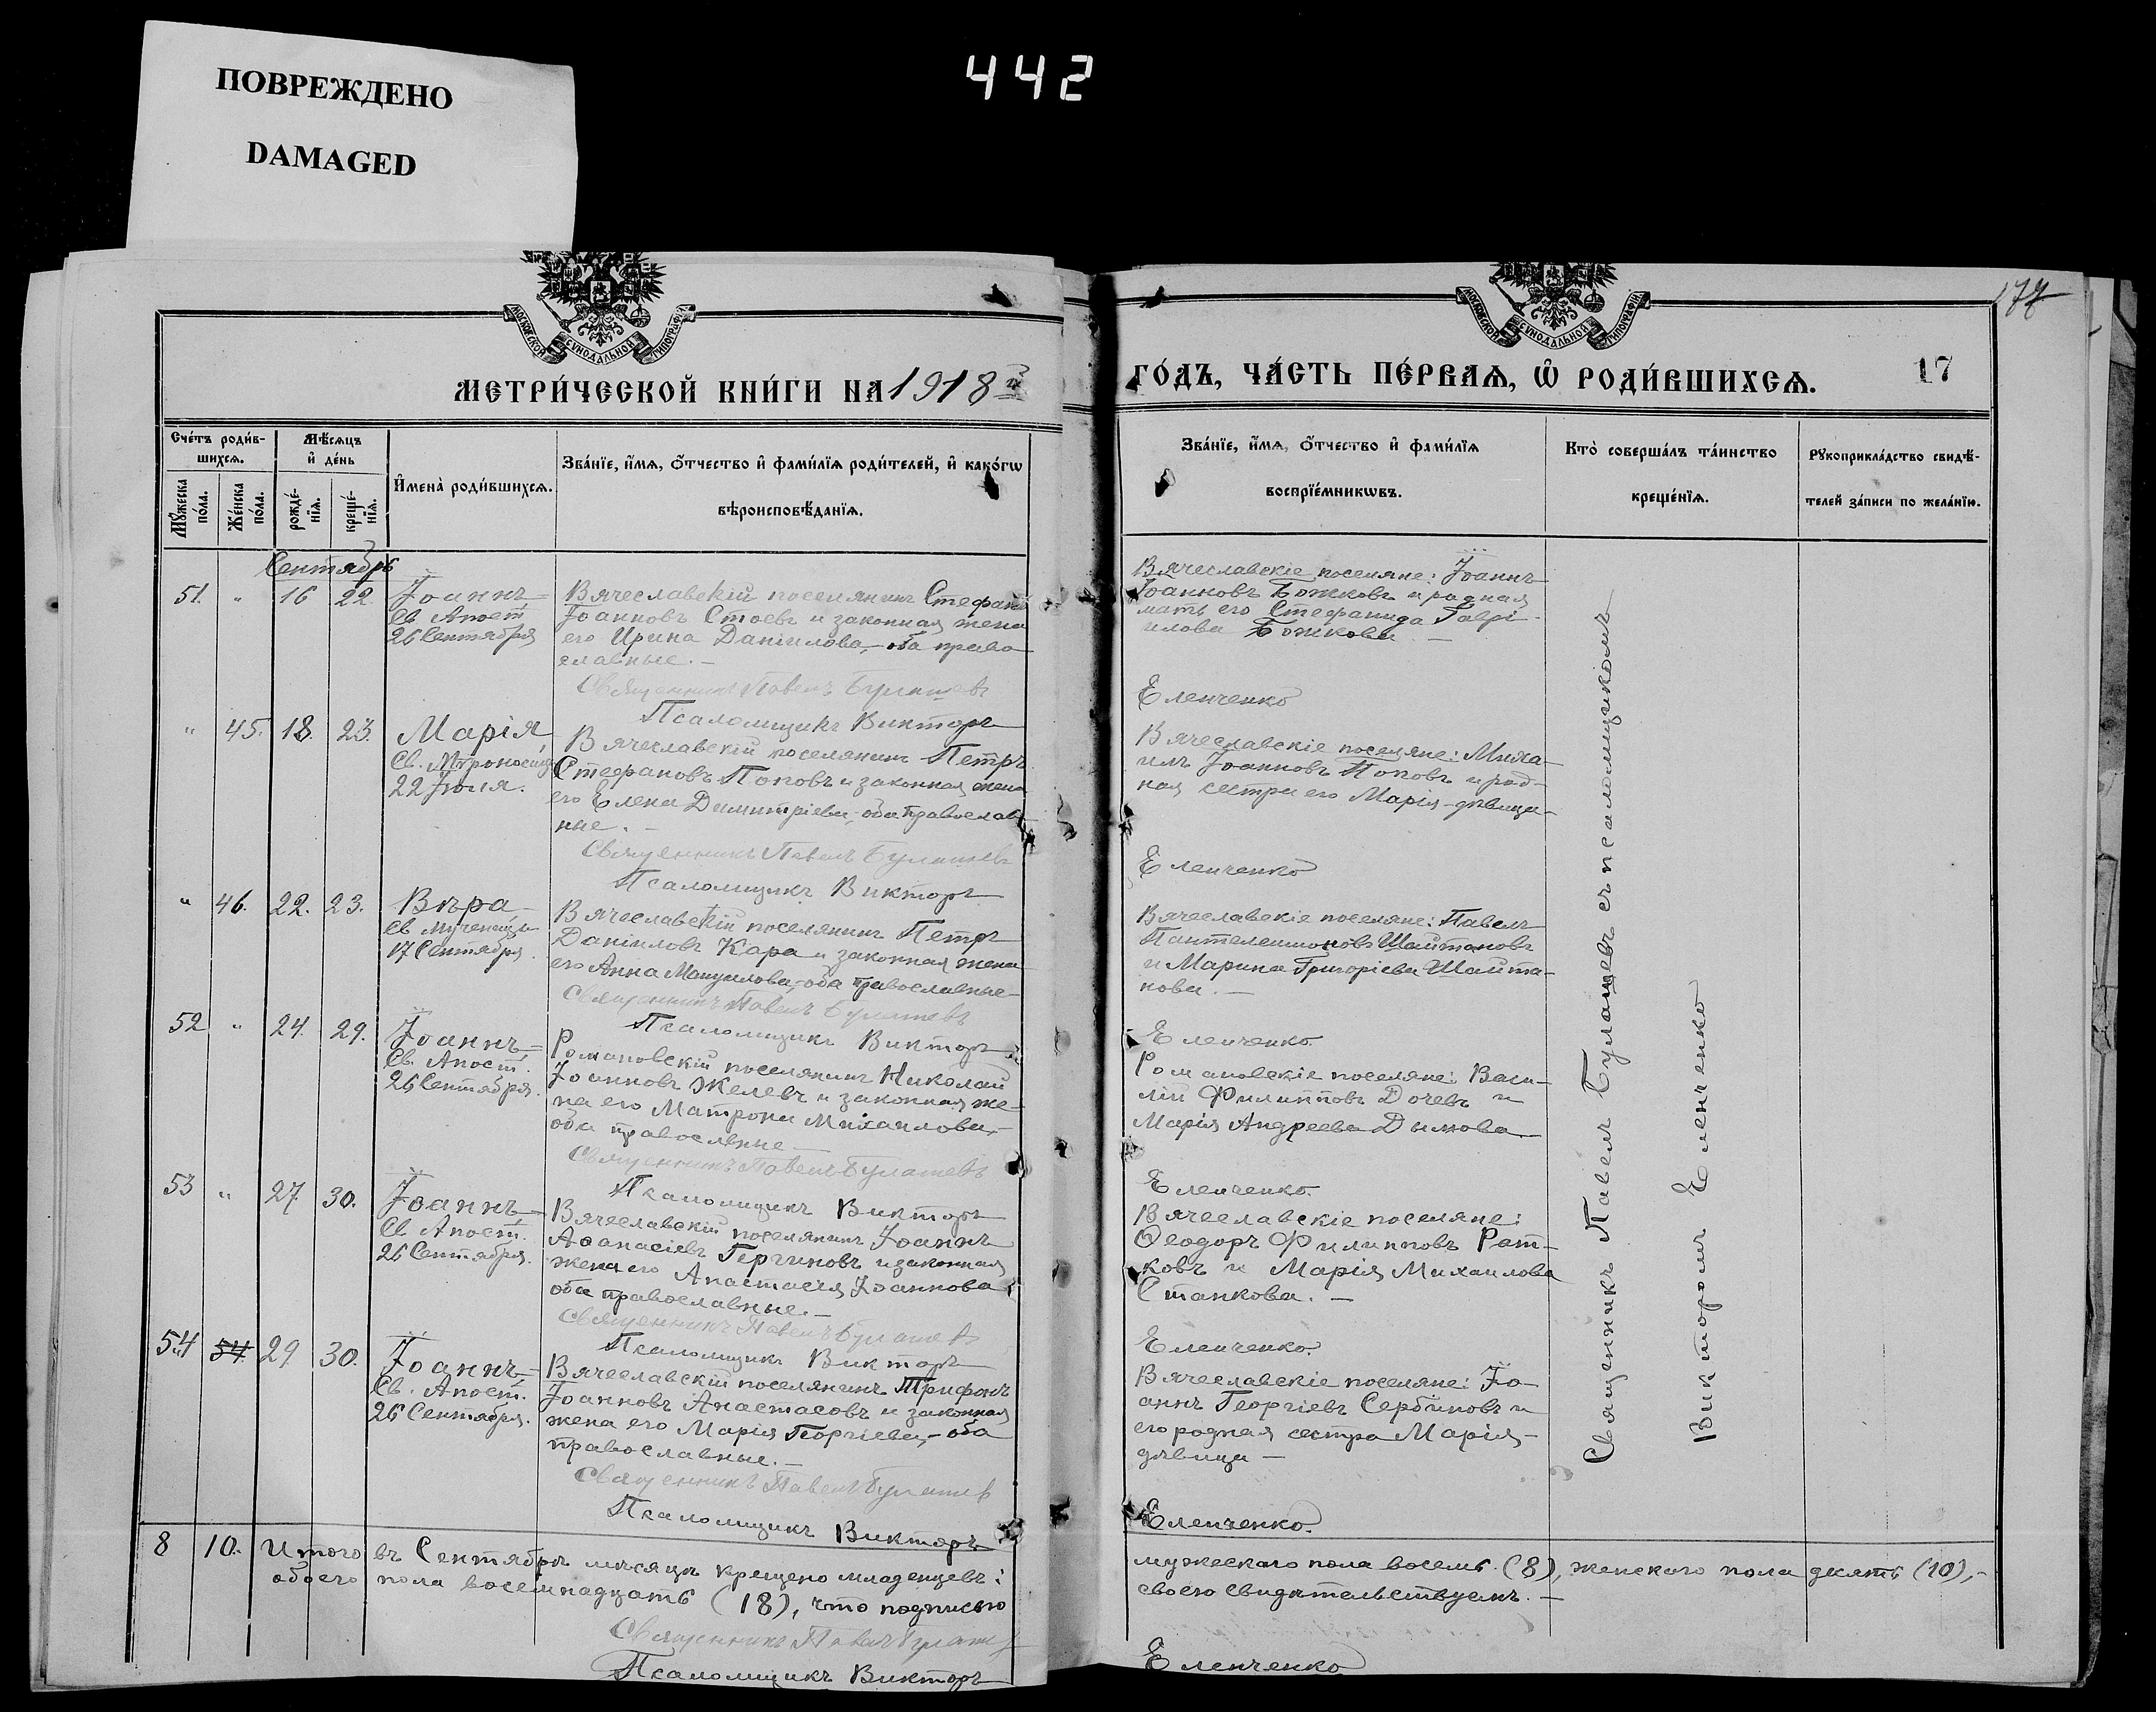 ПОВРЕЖДЕНО
DAMAGED
442
МОСКОВСКОЙ СУНОДАЛЬНОЙ ТИПОГРАФІИ
МЕТРИ́ЧЕСКОЙ КНИ́ГИ НА 1918й
Сче́тъ роди́в-
шихсѧ.
Мѣ́сѧцъ
и҆ де́нь
Мꙋ́жеска
по́ла.
Же́нска
по́ла.
рожде́-
нїѧ.
креще́-
нїѧ.
И҆мена̀ роди́вшихсѧ.
Зва́нїе, и҆́мѧ, ѻ҆́тчество и҆ фами́лїѧ роди́телей, и҆ како́гѡ
вѣроисповѣ́данїѧ.
Сентябрь
51. " 16 22. Іоаннъ
Св. Апост.
26 Сентября
Вячеславскій поселянинъ Стефанъ
Іоанновъ Стоевъ и законная жена
его Ирина Даніилова,- оба право-
славные.-
Священникъ Павелъ Булашевъ
Псаломщикъ Викторъ
" 45. 18. 23. Марія
Св. Мѵроносица
22 Іюля.
Вячеславскій поселянинъ Петръ
Стефановъ Поповъ и законная жена
его Елена Димитріева,- оба православ-
ные.-
Священникъ Павелъ Булашевъ
Псаломщикъ Викторъ
" 46. 22. 23. Вѣра
Св. мученица
17 Сентября.
Вячеславскій поселянинъ Петръ
Даніиловъ Кара и законная жена
его Анна Мануилова,- оба православные
Священникъ Павелъ Булашевъ
Псаломщикъ Викторъ
52 " 24. 29. Іоаннъ
Св. Апост.
26 Сентября.
Романовскій поселянинъ Николай
Іоанновъ Желевъ и законная же-
на его Матрона Михаилова,-
оба православные
Священникъ Павелъ Булашевъ
Псаломщикъ Викторъ
53 " 27. 30. Іоаннъ
Св. Апост.
26 Сентября.
Вячеславскій поселянинъ Іоаннъ
Аѳанасіевъ Гергиновъ и законная
жена его Анастасія Іоаннова
оба православные.-
Священникъ Павелъ Булашев
Псаломщикъ Викторъ
54 54. 29. 30. Іоаннъ
Св. Апост.
26 Сентября.
Вячеславскій поселянинъ Трифонъ
Іоанновъ Анастасовъ и законная
жена его Марія Георгіева,- оба
православные.-
Священникъ Павелъ Булашев
Псаломщикъ Викторъ
8 10. Итого въ Сентябрѣ мѣсяцѣ крещено младенцевъ:
обоего пола восемнадцать (18), что подписью
Священникъ Павелъ Булашев
Псаломщикъ Викторъ
17
МОСКОВСКОЙ СУНОДАЛЬНОЙ ТИПОГРАФІИ
ГО́ДЪ, ЧА́СТЬ ПЕ́РВАѦ, Ѡ҆ РОДИ́ВШИХСѦ.
Зва́нїе, и҆́мѧ, ѻ҆́тчество и҆ фами́лїѧ
воспрїе́мникѡвъ.
Кто̀ соверша́лъ та́инство
креще́нїѧ.
Рꙋкоприкла́дство свидѣ́-
телей за́писи по жела́нїю.
Вячеславскіе поселяне: Іоаннъ
Іоанновъ Божковъ и родная
мать его Стефанида Гаврі-
илова Божкова.-
Еленченко
Вячеславскіе поселяне: Миха-
илъ Іоанновъ Поповъ и род-
ная сестра его Марія-дѣвица-
Еленченко
Вячеславскіе поселяне: Павелъ
Пантелеимоновъ Шайтановъ
и Марина Григоріева Шайта-
нова.-
Еленченко.
Романовскіе поселяне: Васи-
лій Филипповъ Дочевъ и
Марія Андреева Дымова
Еленченко.
Вячеславскіе поселяне:
Ѳеодоръ Филипповъ Рат-
ковъ и Марія Михаилова
Станкова.-
Еленченко.
Вячеславскіе поселяне: Іо-
аннъ Георгіевъ Сербиновъ и
его родная сестра Марія-
дѣвица-
Еленченко.
Священникъ Павелъ Булашевъ съ псаломщикомъ
Викторомъ Еленченко
мужескаго пола восемь (8), женскаго пола десять (10),-
своею свидѣтельствуемъ.-
Еленченко